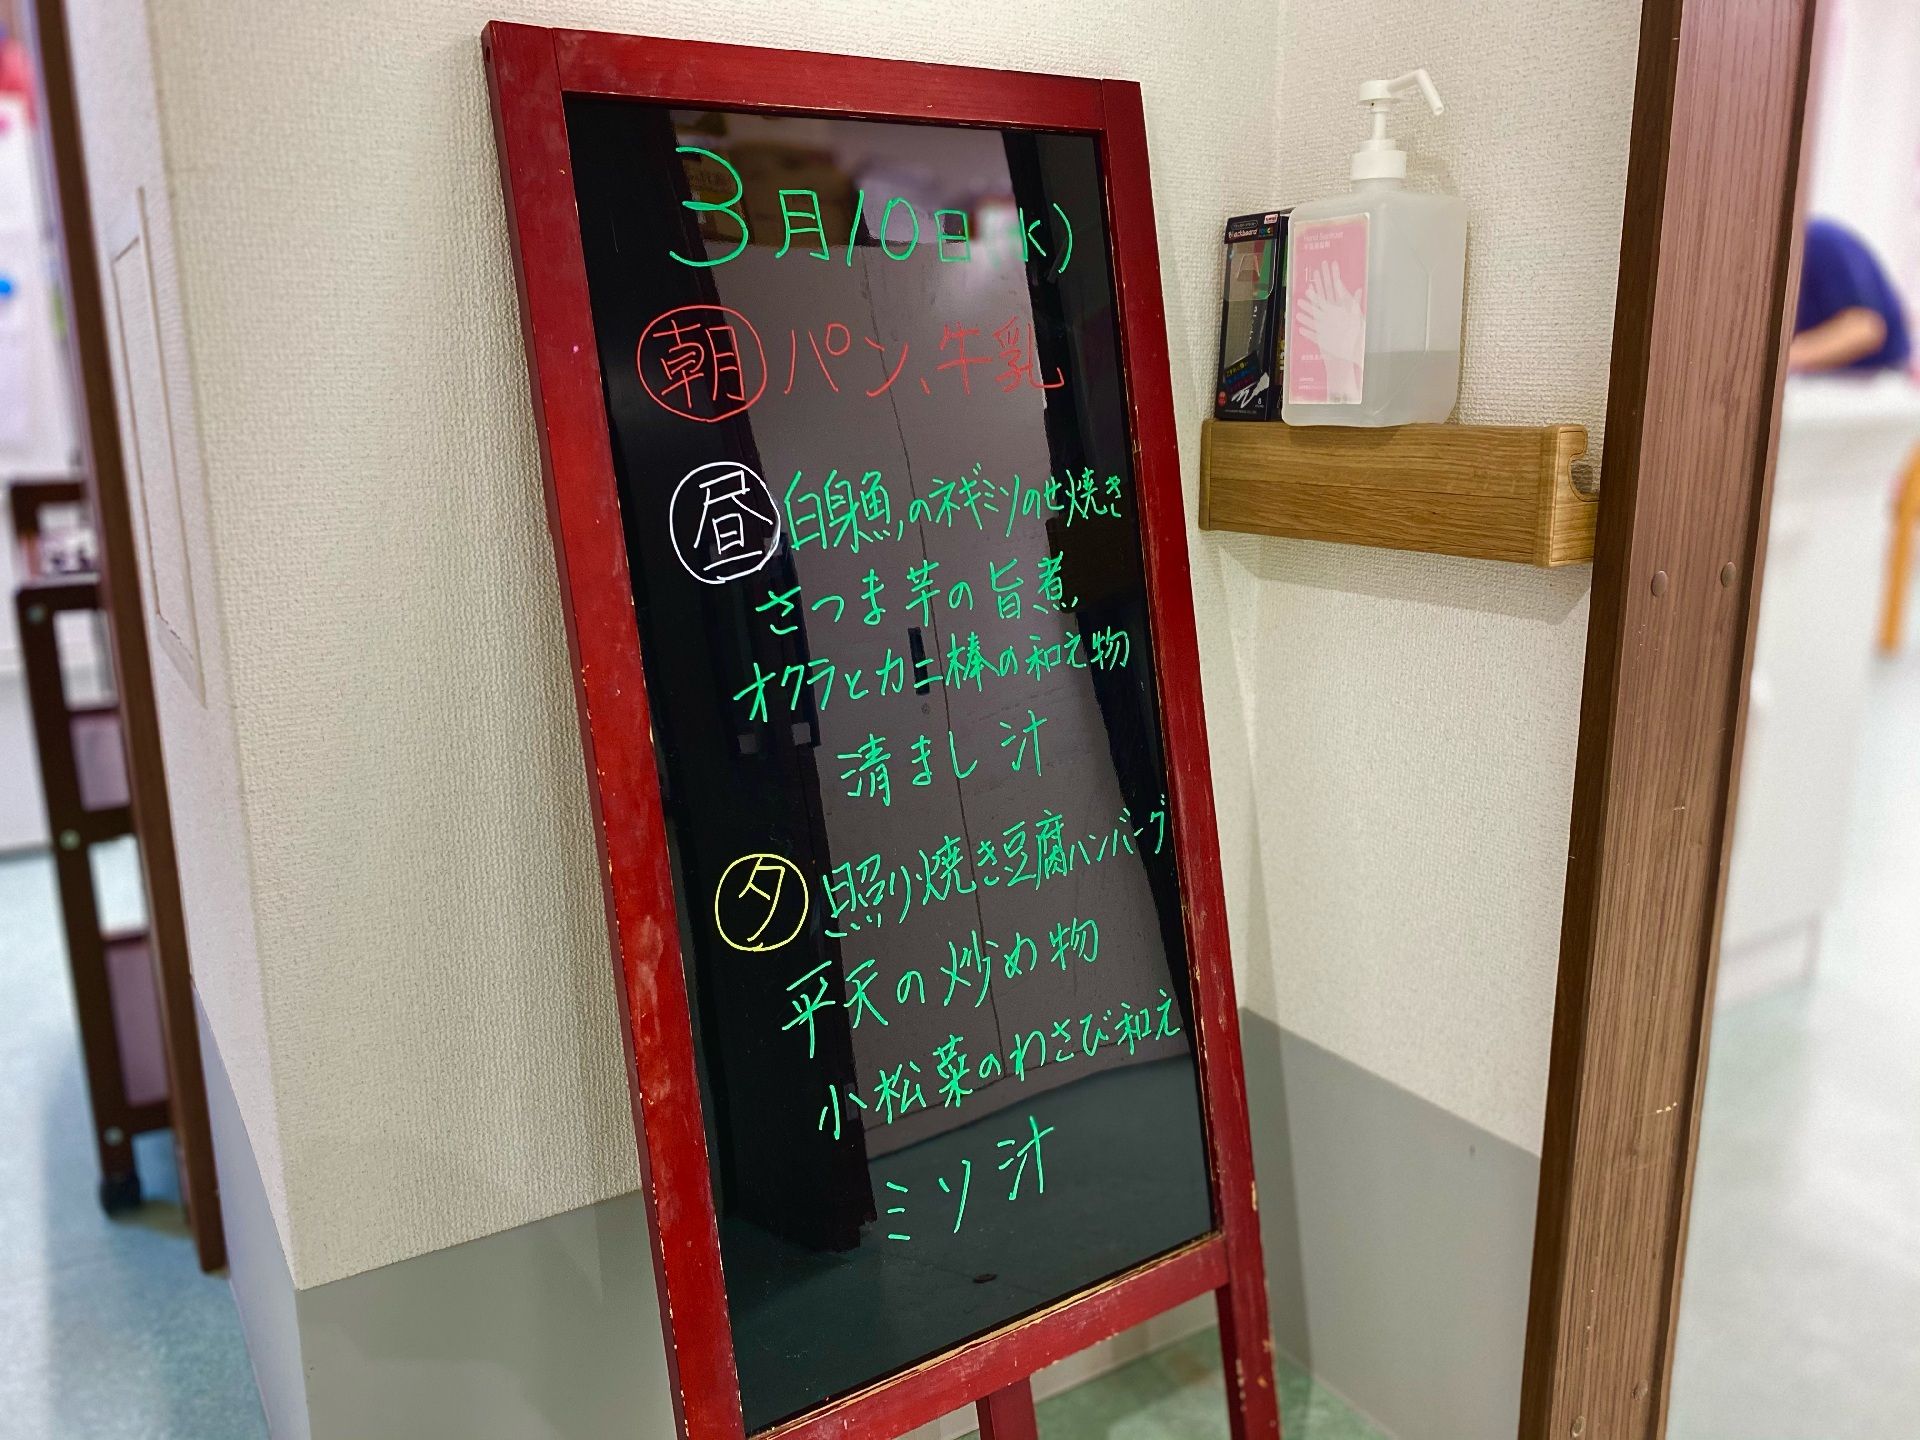 3月10日(水)
朝 パン、牛乳
昼 白身魚のネギミソのせ焼き
さつま芋の旨煮
オクラとカニ棒の和え物
清まし汁
夕 照り焼き豆腐ハンバーグ
平天の炒め物
小松菜のわさび和え
ミソ汁
Blackboard
Hand Sanitizer
1L